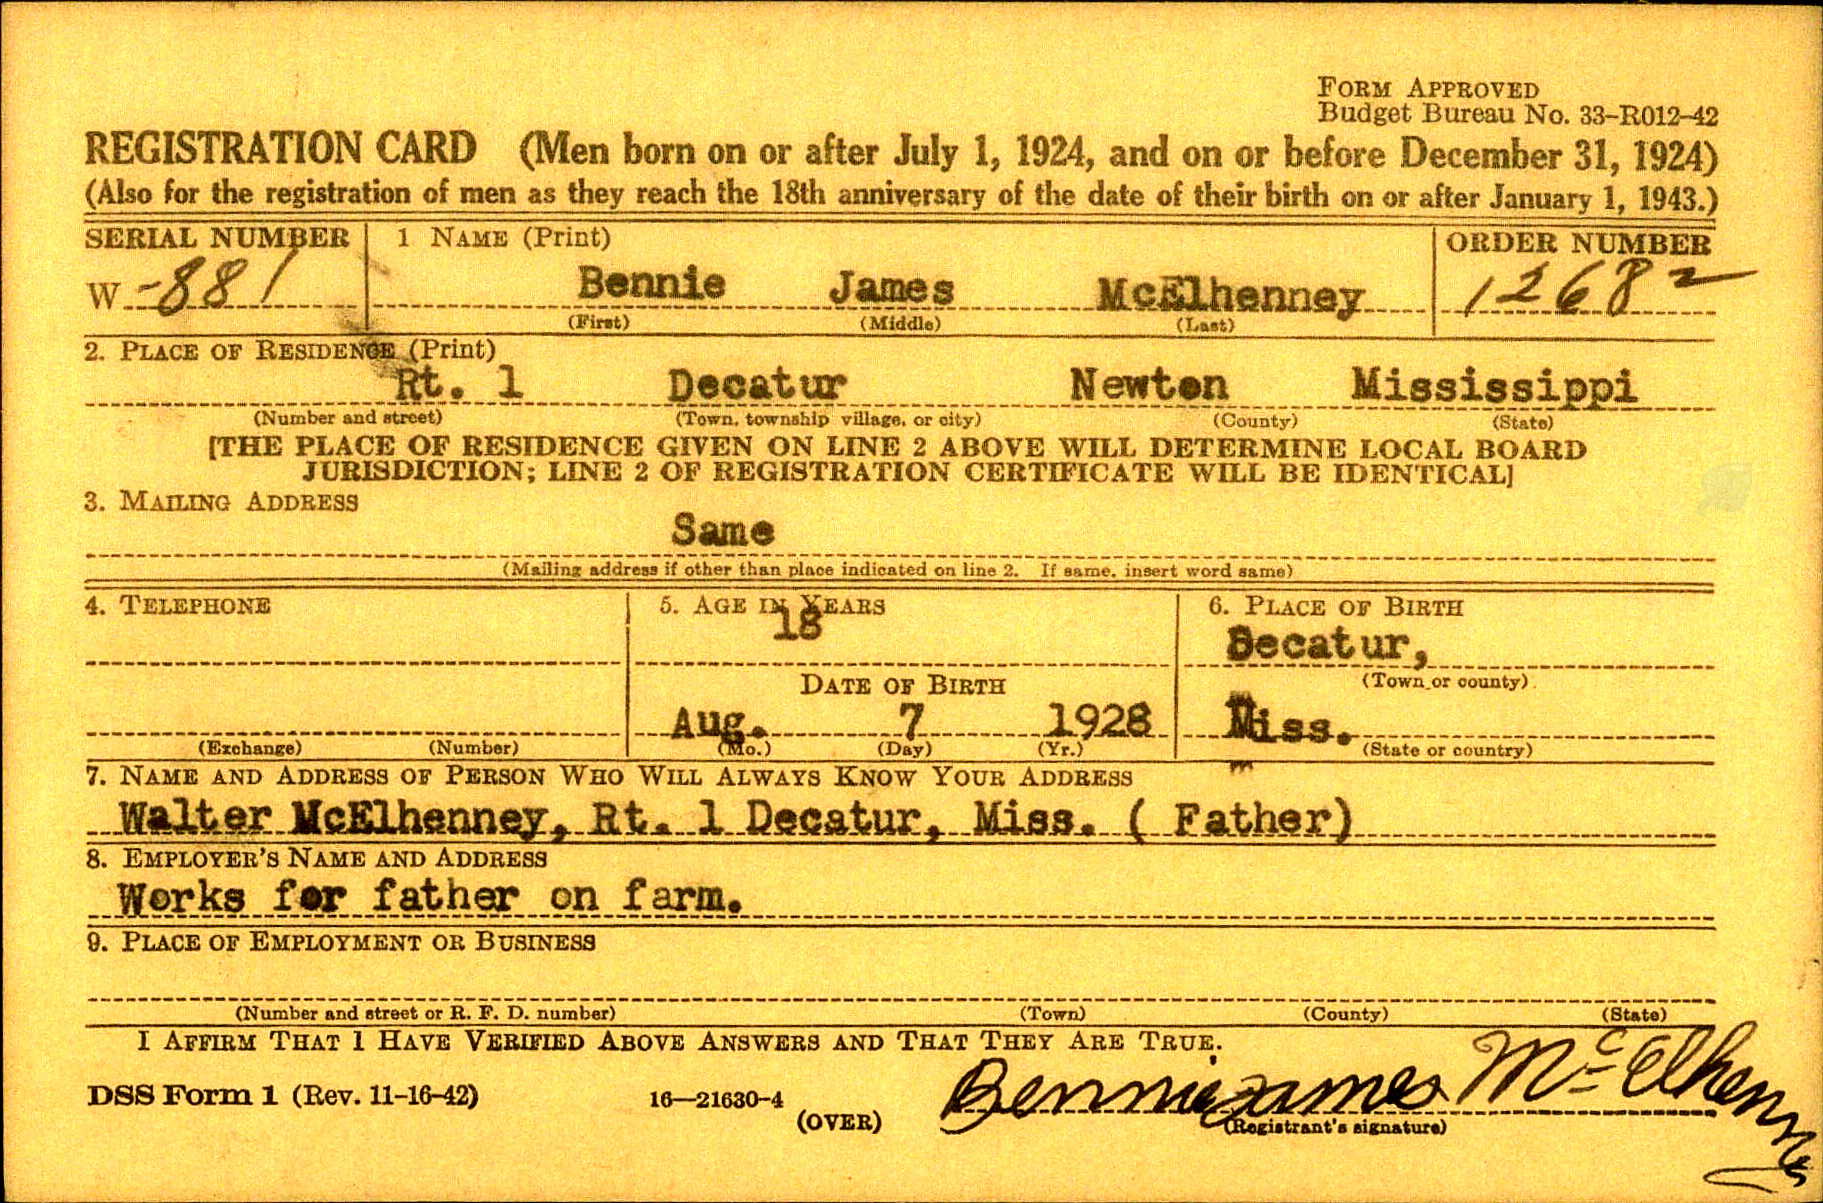 FORM APPROVED
Budget Bureau No. 33-R012-42
REGISTRATION CARD (Men born on or after July 1, 1924, and on or before December 31, 1924)
(Also for the registration of men as they reach the 18th anniversary of the date of their birth on or after January 1, 1943.)
SERIAL NUMBER 1 NAME (Print) ORDER NUMBER
W -881 Bennie James McElhenney 12682
(First) (Middle) (Last)
2. PLACE OF RESIDENCE (Print)
Rt. 1 Decatur Newton Mississippi
(Number and street) (Town, township village, or city) (County) (State)
[THE PLACE OF RESIDENCE GIVEN ON LINE 2 ABOVE WILL DETERMINE LOCAL BOARD
JURISDICTION; LINE 2 OF REGISTRATION CERTIFICATE WILL BE IDENTICAL]
3. MAILING ADDRESS
Same
(Mailing address if other than place indicated on line 2. If same, insert word same)
4. TELEPHONE 5. AGE IN YEARS 6. PLACE OF BIRTH
18 Decatur,
(Town or county)
DATE OF BIRTH
Aug. 7 1928 Miss.
(Exchange) (Number) (Mo.) (Day) (Yr.) (State or country)
7. NAME AND ADDRESS OF PERSON WHO WILL ALWAYS KNOW YOUR ADDRESS
Walter McElhenney, Rt. 1 Decatur, Miss. ( Father)
8. EMPLOYER'S NAME AND ADDRESS
Works for father on farm.
9. PLACE OF EMPLOYMENT OR BUSINESS
(Number and street or R. F. D. number) (Town) (County) (State)
I AFFIRM THAT I HAVE VERIFIED ABOVE ANSWERS AND THAT THEY ARE TRUE.
DSS Form 1 (Rev. 11-16-42) 16—21630-4 (OVER) Bennie James McElhenney
(Registrant's signature)